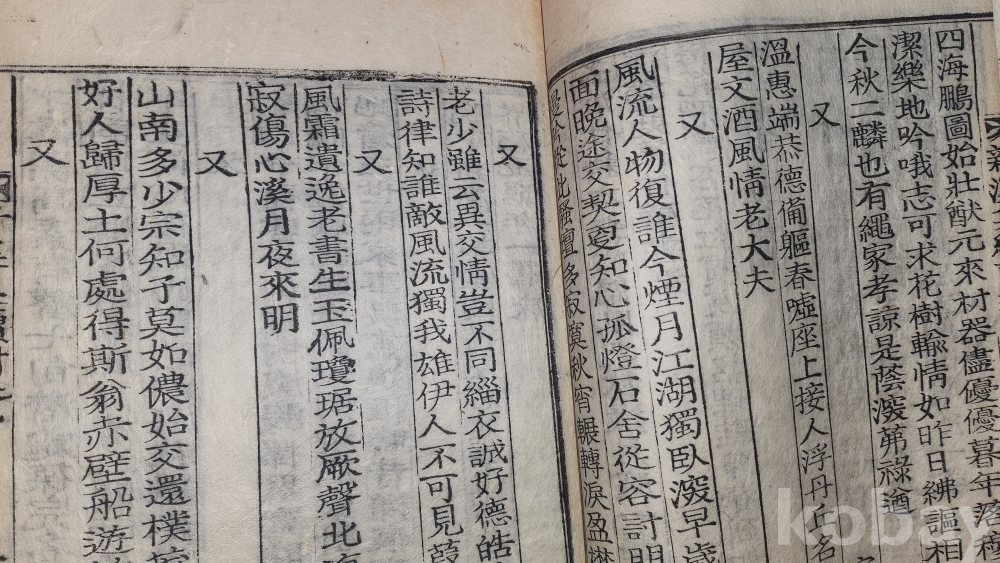 四海鵬圖始壯猷元來材器儘優優暮年落
潔樂地吟哦志可求花樹輸情如昨日紼謳相
今秋二麟也有繩家孝諒是蔭深第祿遒
又
溫惠端恭德備軀春噓座上接人浮丹丘名
屋文酒風情老大夫
又
風流人物復誰今煙月江湖獨臥深早歲
面晚途交契更知心孤燈石舍從容計明
從此騷壇多寂寞秋宵輾轉淚盈
又
老少雖云異交情豈不同緇衣誠好德皓
詩律知誰敵風流獨我雄伊人不可見葭
又
風霜遺逸老書生玉佩瓊琚放厥聲北
寂傷心溪月夜來明
又
山南多少宗知子莫如儂始交還樸
好人歸厚土何處得斯翁赤壁船遊
又
kobay